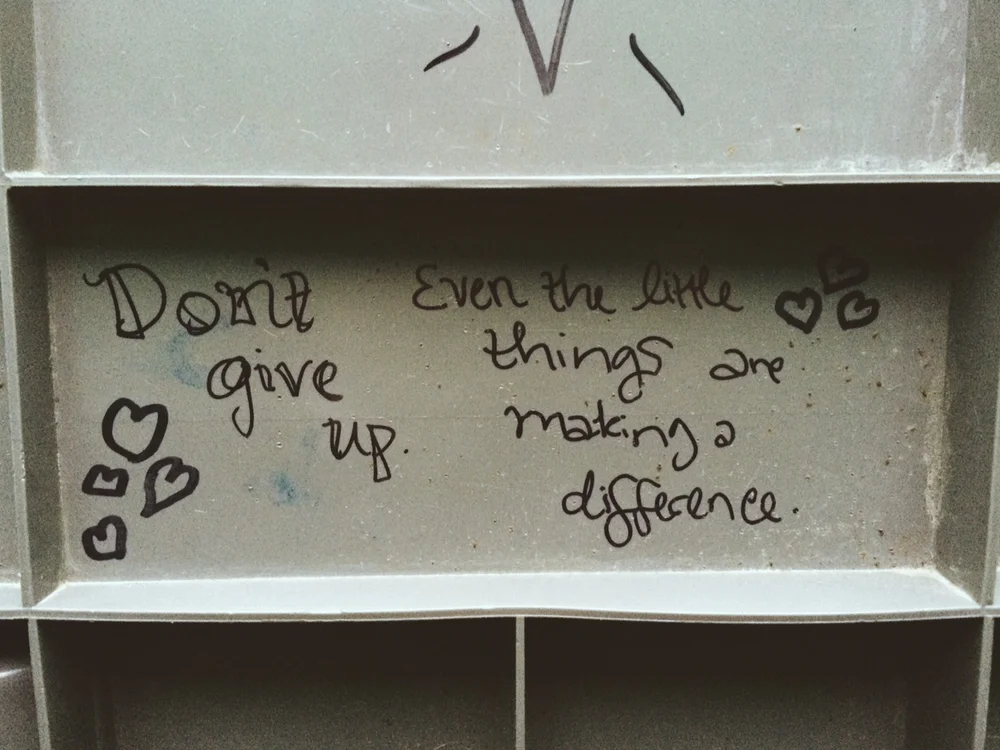 Don't
give
up.
Even the little
things are
making a
difference.